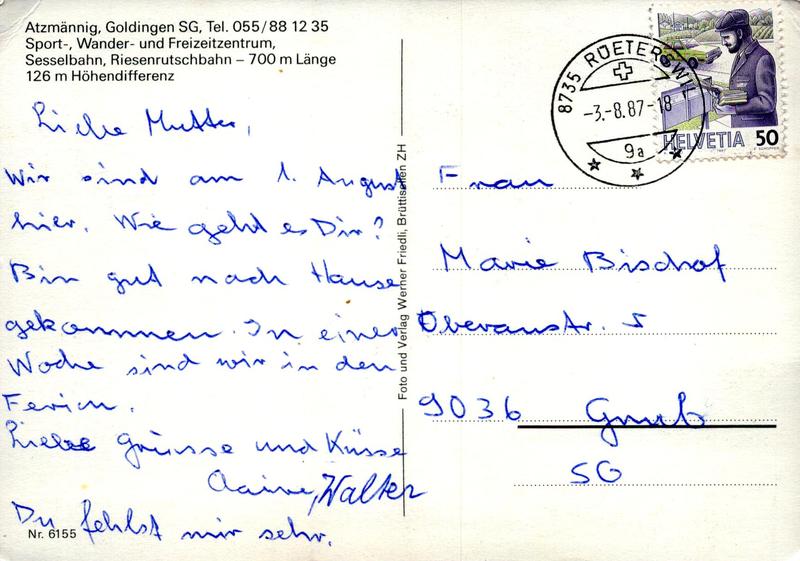 Atzmännig, Goldingen SG, Tel. 055/88 12 35
Sport-, Wander- und Freizeitzentrum,
Sesselbahn, Riesenrutschbahn – 700 m Länge
126 m Höhendifferenz
Liebe Mutter,
Wir sind am 1. August
hier. Wie geht es Dir?
Bin gut nach Hause
gekommen. In einer
Woche sind wir in den
Ferien.
Liebe Grüsse und Küsse
Walter
Du fehlst mir sehr.
Nr. 6155
Foto und Verlag Werner Friedli, Brüttisellen ZH
8735 RÜETERSWIL
-3.-8.87-18
9a
HELVETIA 50
Frau
Marie Bischof
5
9036 Grub
SG